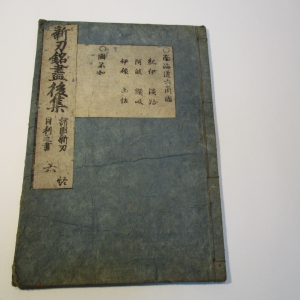 新刀銘盡後集
諸国新刀
目利之書
六
○南海道六箇國
紀伊 淡路
阿波 讃岐
伊豫 土佐